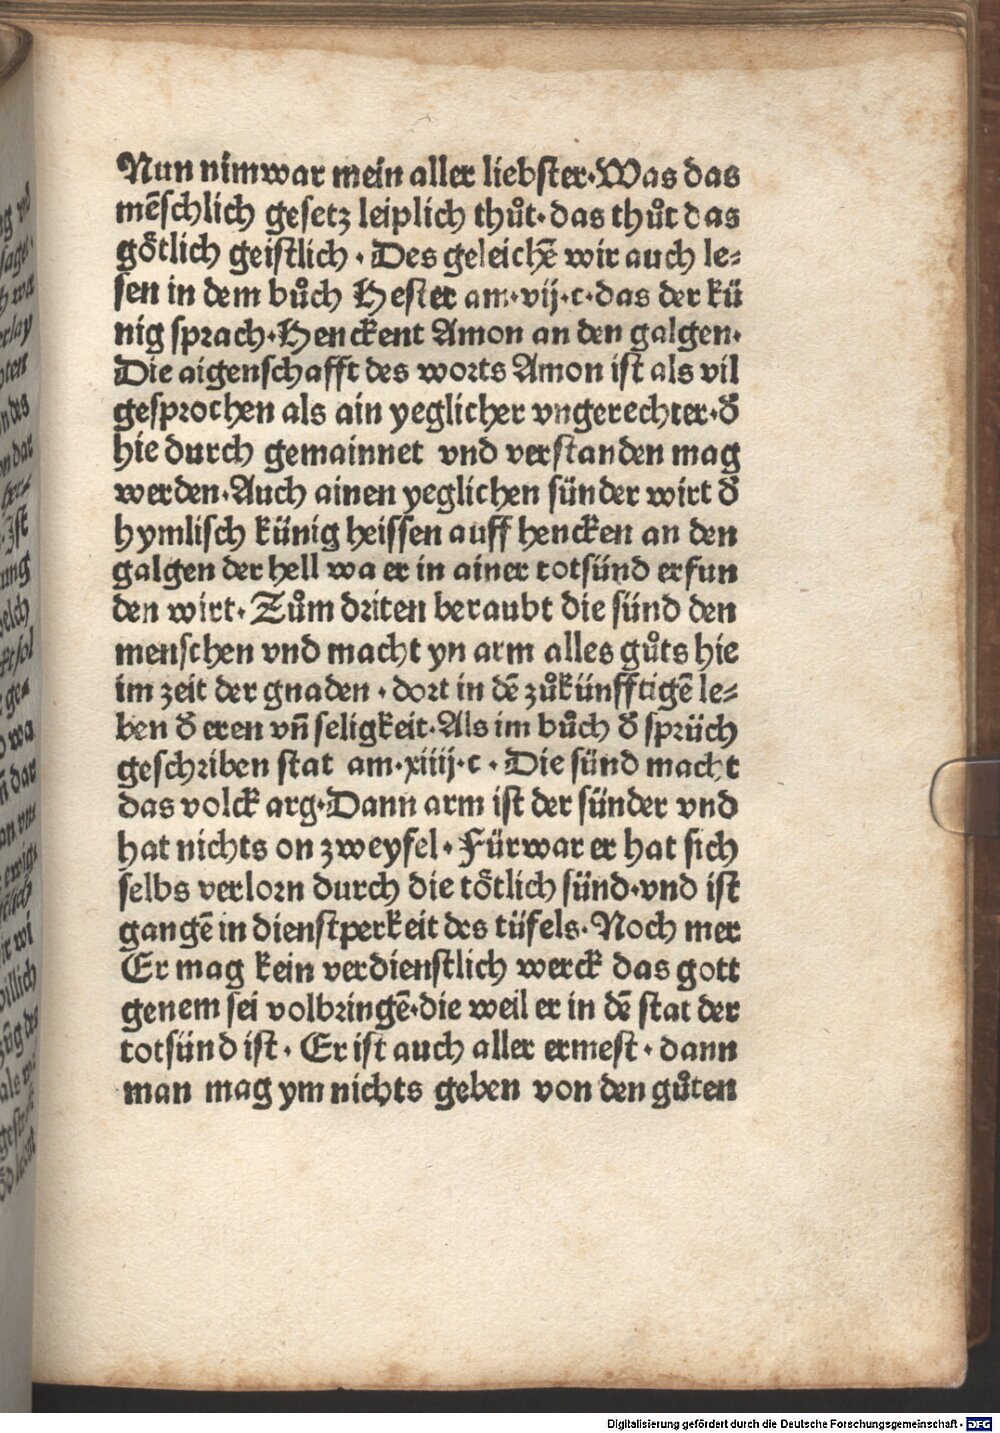 Nun nimwar mein aller liebster·Was das
mēschlich gesetz leiplich thůt·das thůt das
götlich geistlich · Des geleichē wir auch le⸗
sen in dem bůch Hester am·vij·c·das der kü
nig sprach·Henckent Amon an den galgen·
Die aigenschafft des worts Amon ist als vil
gesprochen als ain yeglicher vngerechter·ď
hie durch gemainnet vnd verstanden mag
werden·Auch ainen yeglichen sünder wirt ď
hymlisch künig heissen auff hencken an den
galgen der hell wa er in ainer totsünd erfun
den wirt·Zům driten beraubt die sünd den
menschen vnd macht yn arm alles gůts hie
im zeit der gnaden · dort in dē zůkünfftigē le⸗
ben ď eren vn̄ seligkeit·Als im bůch ď sprüch
geschriben stat am·xiiij·c · Die sünd macht
das volck arg·Dann arm ist der sünder vnd
hat nichts on zweyfel · Fürwar er hat sich
selbs verlorn durch die tötlich sünd·vnd ist
gangē in dienstperkeit des tüfels·Noch mer
Er mag kein verdienstlich werck das gott
genem sei volbringē·die weil er in dē stat der
totsünd ist · Er ist auch aller ermest · dann
man mag ym nichts geben von den gůten
Digitalisierung gefördert durch die Deutsche Forschungsgemeinschaft - DFG